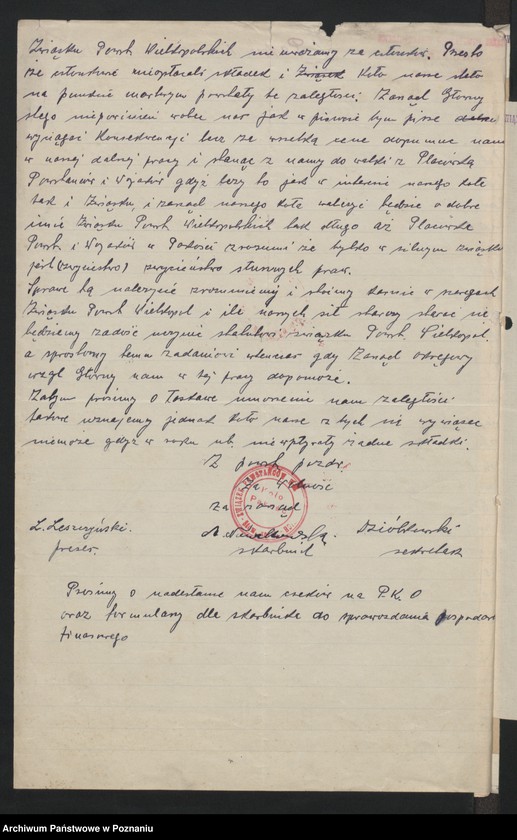 Związku Powst. Wielkopolskich nie uważamy za członków. Przeto
że członkowie nieopłacali składek i Związek Koło nasze stoło
na punkcie martwym powstały te zaległości. Zarząd Główny
niepowinien wobec nas jak w piśmie tym pisze
wyciągać konsekwencji lecz za wszelką cenę dopomuc nam
w naszej dalszej pracy i stanąć z namy do walki z Placówką
Powstańców i Wojaków gdyż leży to jak w interesie naszego koła
tak i Związku, i zarząd naszego koła walczyć będzie o dobre
imię Związku Powst. Wielkopolskich tak długo aż Placówka
Powst. i Wojaków w zrozumi że tylko w silnym związku
jest (zwycięstwo) zwycięństwo słusznych praw.
Sprawę tą należycie zrozumiemy i stoimy karnie w szeregach
Związku Powst. Wielkopol. i ile naszych sił starczy starać się
będziemy zadość uczynić statutowi związku Powst. Wielkopol.
a sprostomy temu zadaniowi wówczas gdy Zarząd okręgowy
wzgl. Główny nam w tej pracy dopomoże.
Zatym prosimy o łaskawe umorzenie nam zaległości
które uznajemy jednak koło nasze z tych się wywiązać
niemoże gdyż w roku ub. niewpłynęły żadne składki.
Z powst. pozdr.
Za Wolność
za zarząd
L. Leszczyński.
prezes.
skarbnik
Dzióbkowski
sekretarz
Prosimy o nadesłanie nam czeków na P.K.O
oraz formularzy dla skarbnika do sprawozdania
finansowego
Archiwum Państwowe w Poznaniu